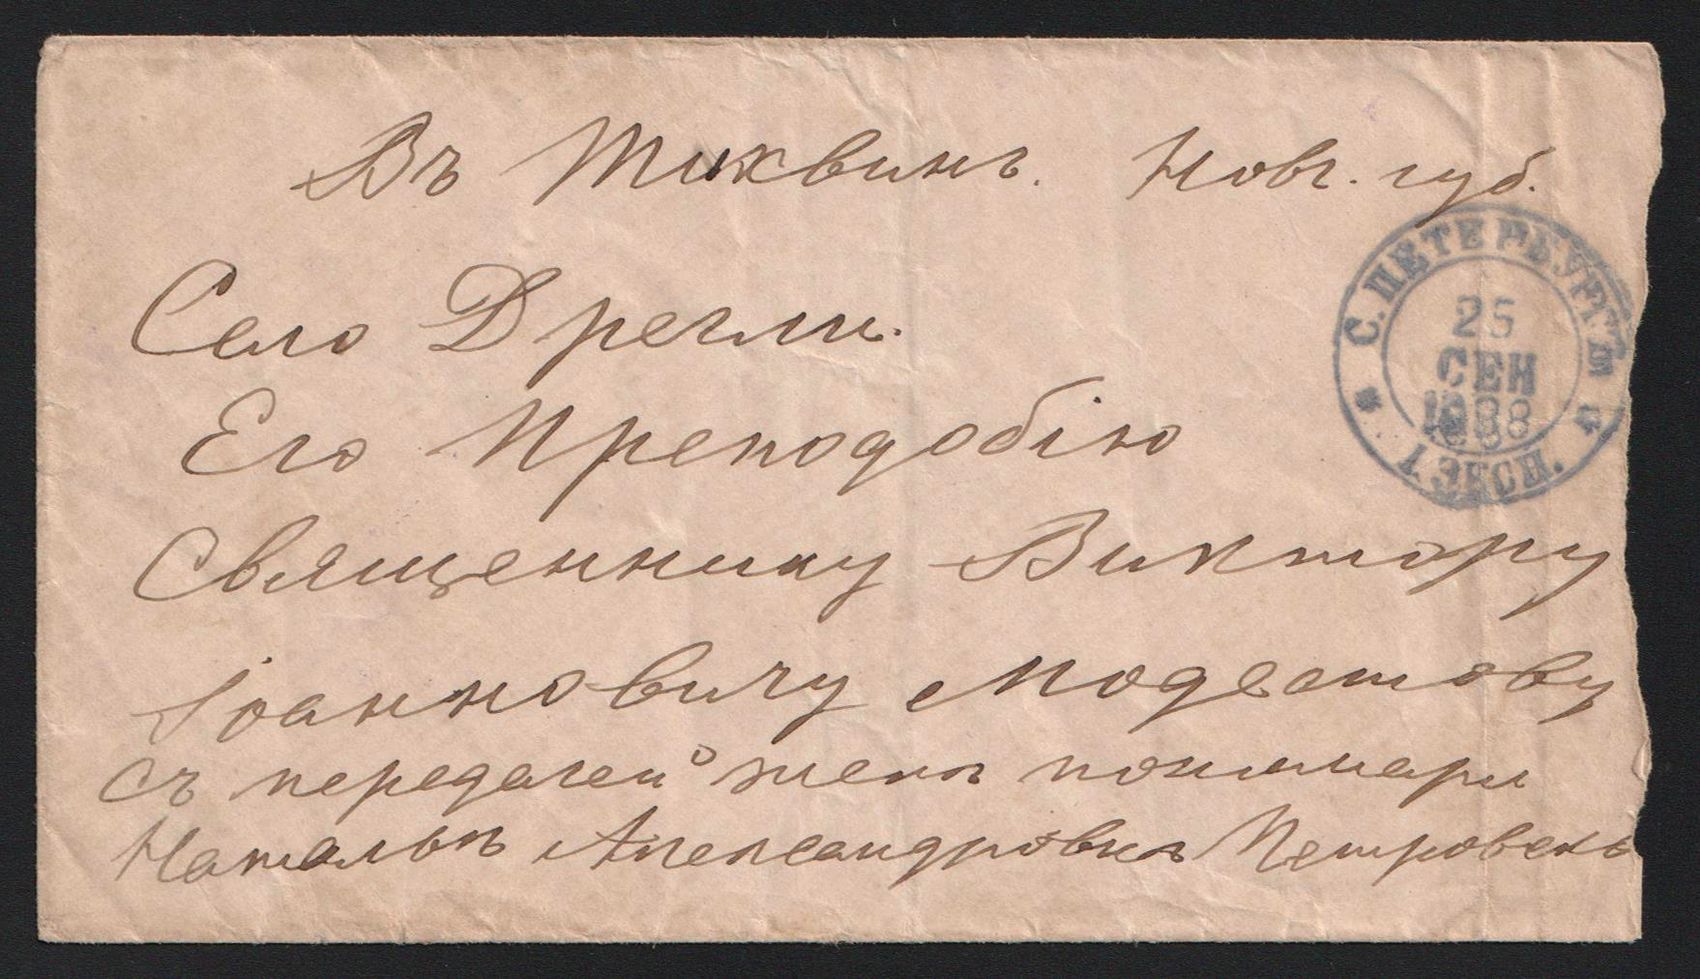 Въ Тихвинъ. Новг. губ.
Село Дрегли.
Его Преподобію
Священнику Виктору
Іоанновичу Модестову
съ передачей женѣ пономаря
Натальѣ Александровнѣ
С. ПЕТЕРБУРГЪ
СЕН
1888
1 ЭКСП.